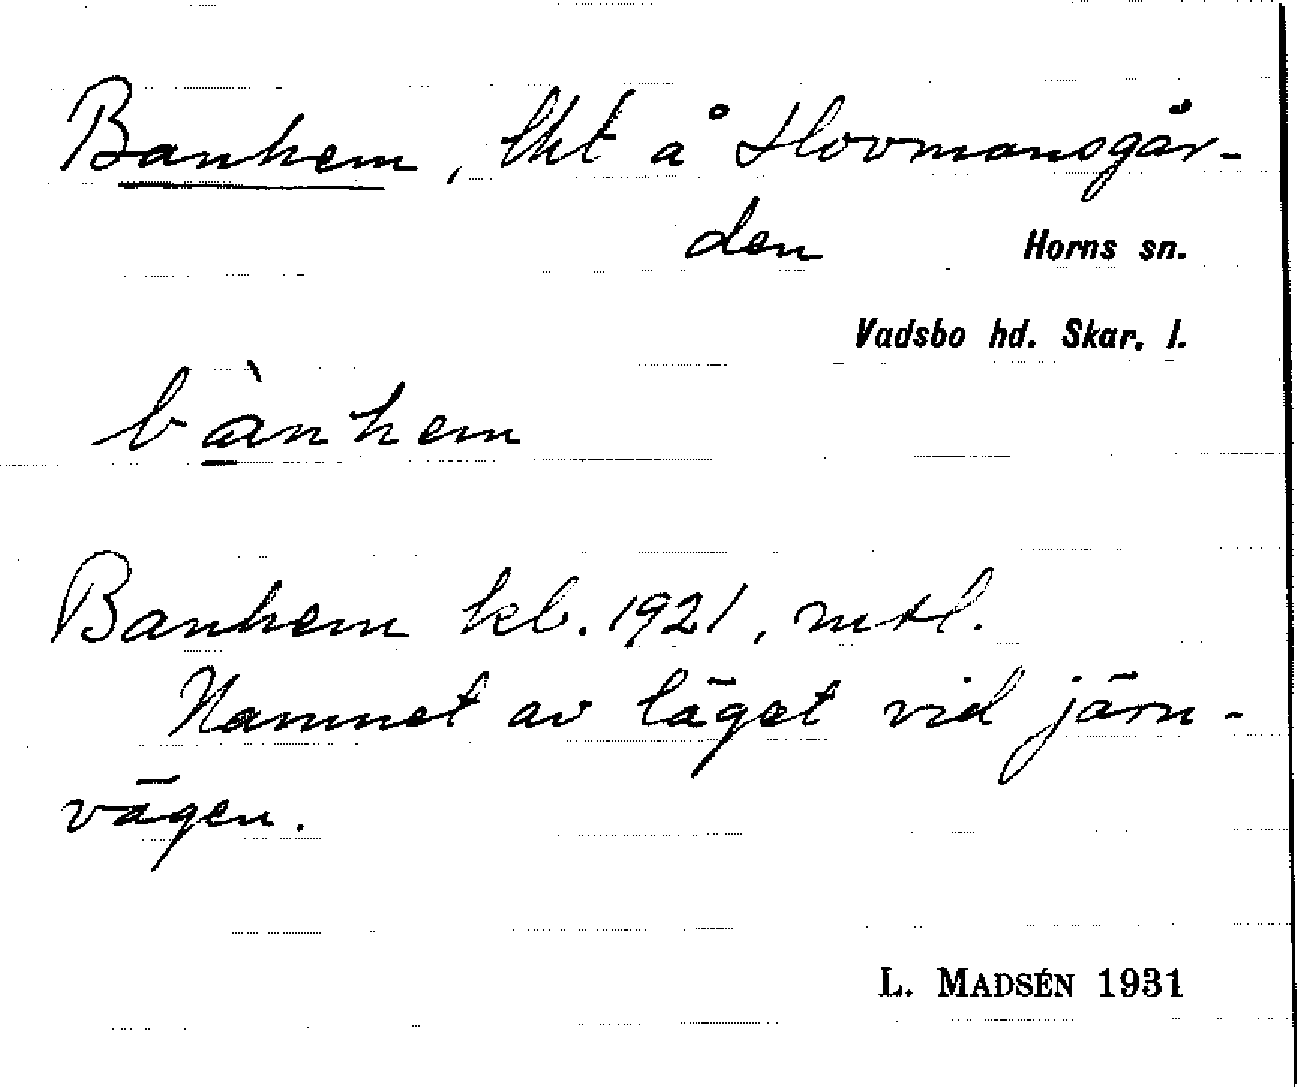 Banhem, lht å Hovmansgår-
den
Horns sn.
Vadsbo hd. Skar. l.
bànhem
Banhem kb. 1921, mtl.
Namnet av läget vid järn-
vägen.
L. MADSÉN 1931